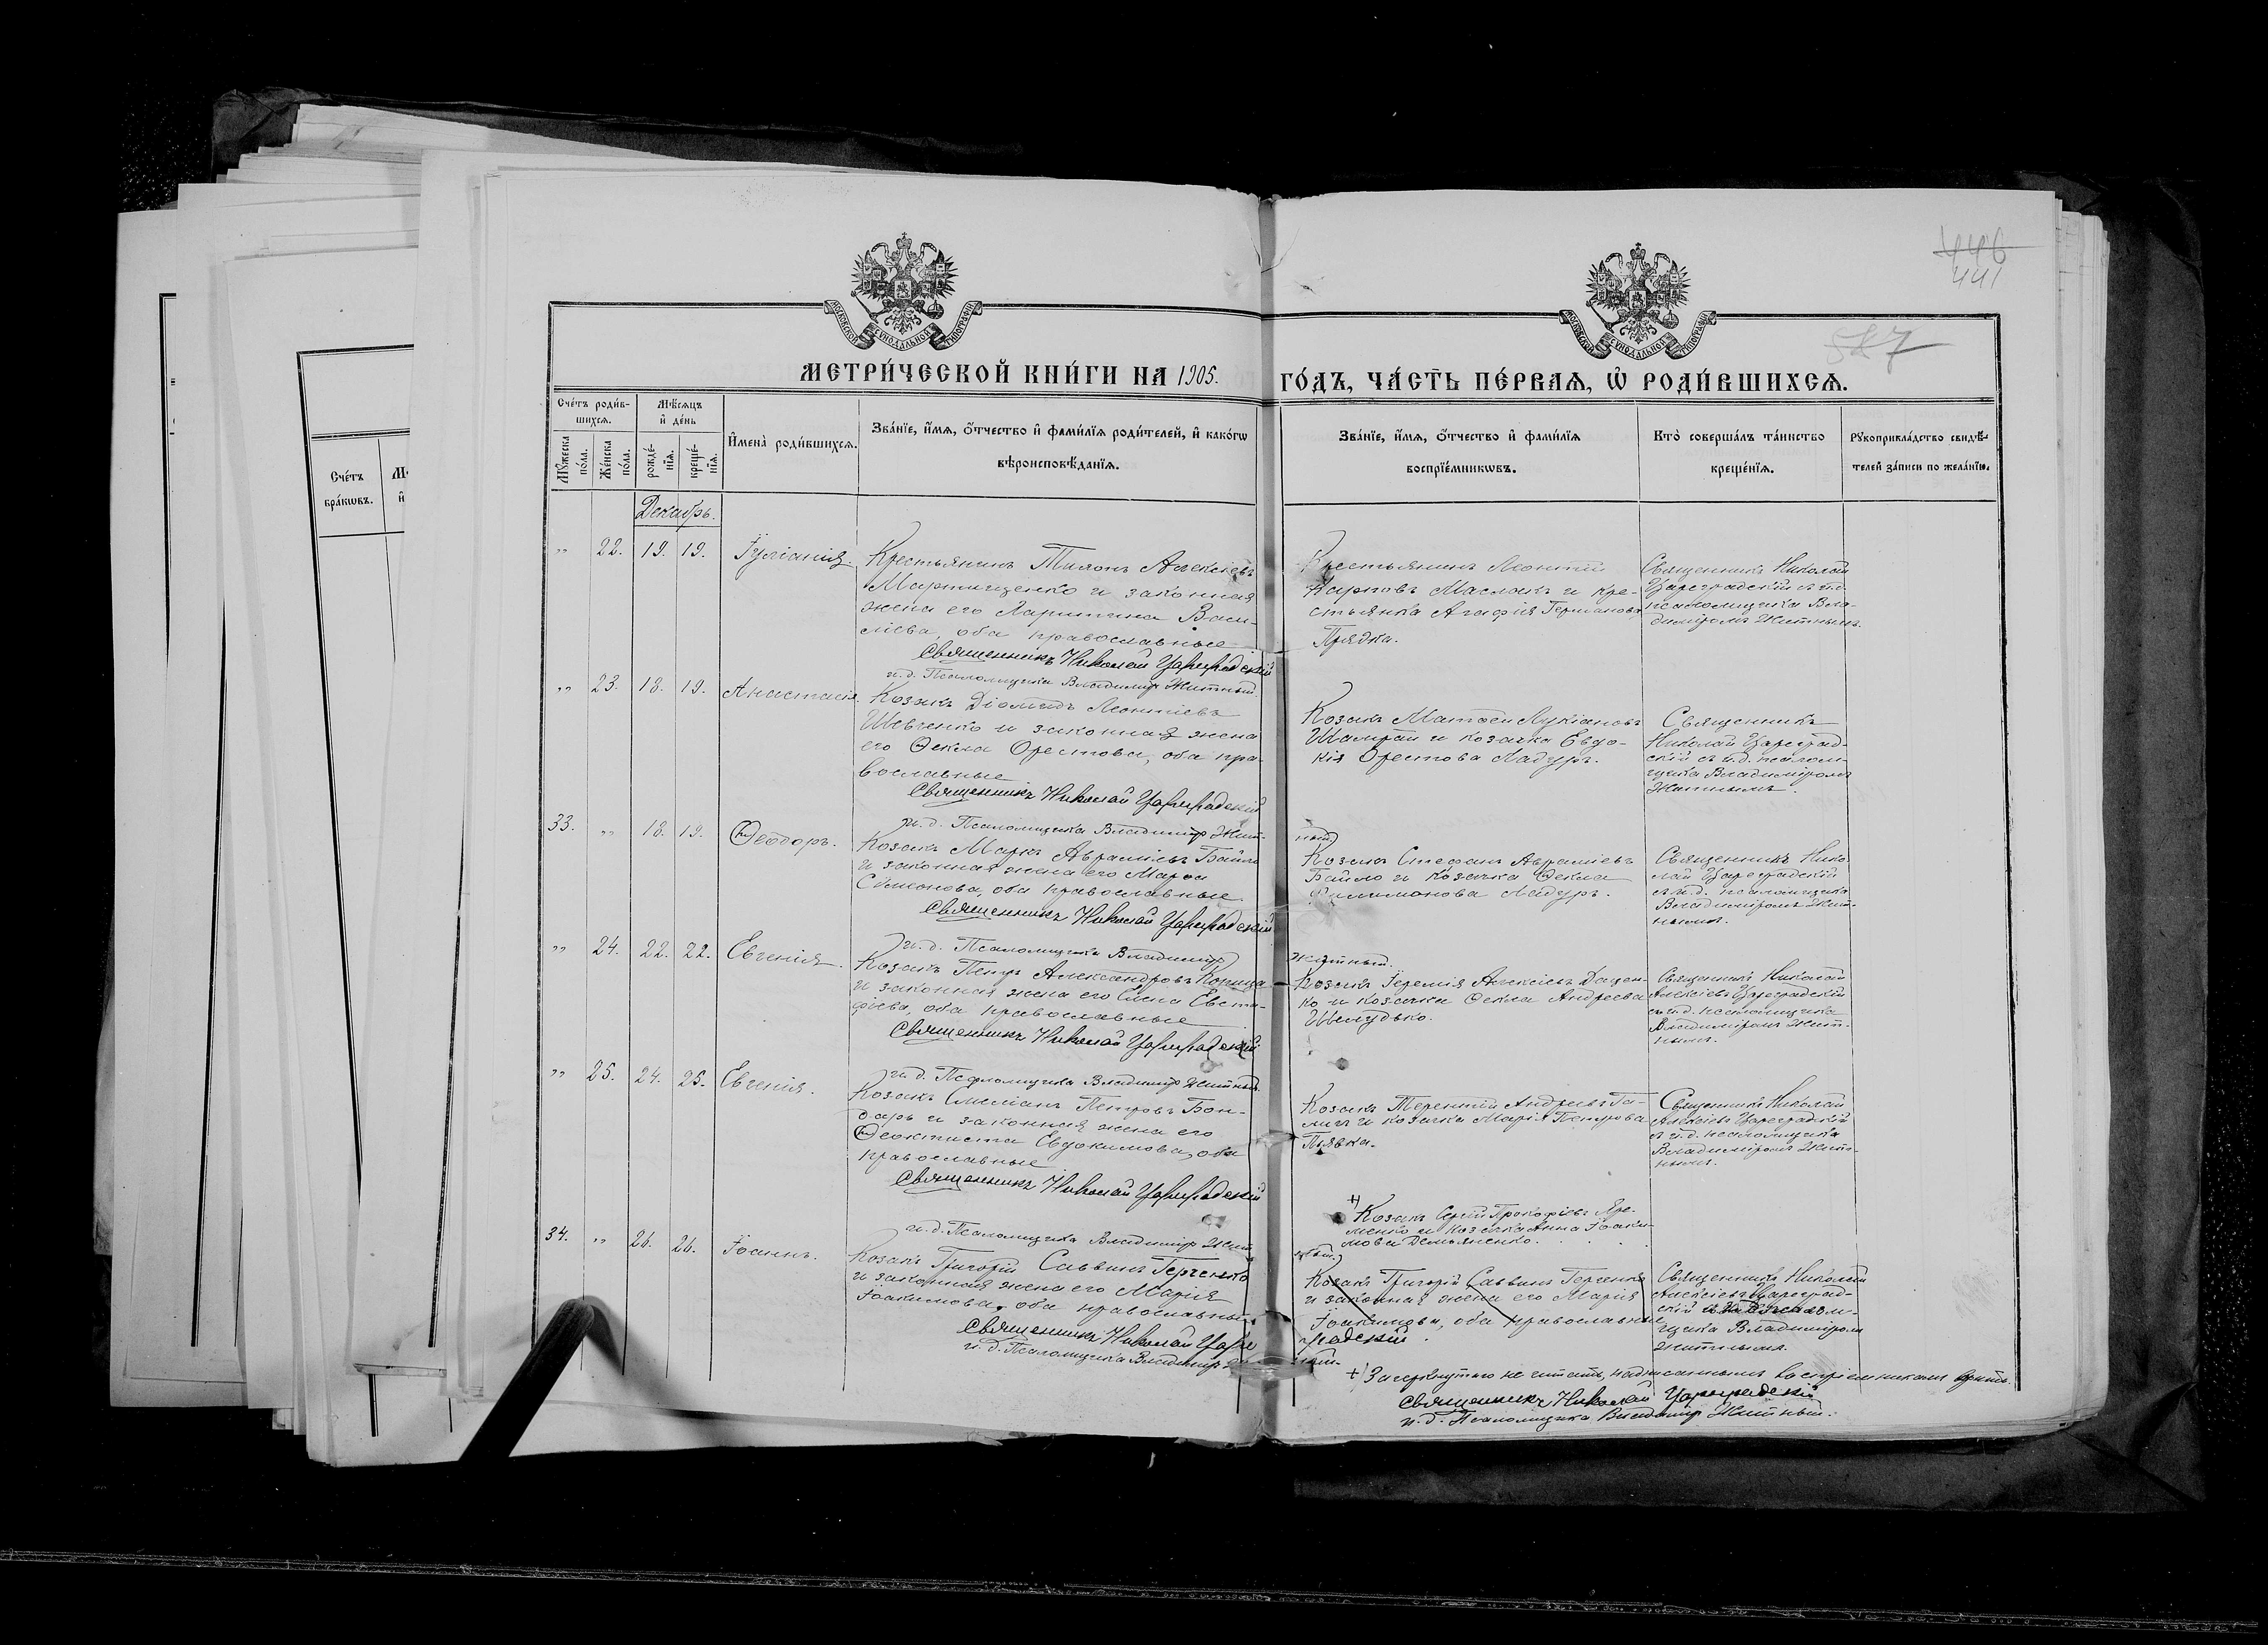 446
441
527
МОСКОВСКОЙ СѴНОДАЛЬНОЙ ТИПОГРАФІИ
МОСКОВСКОЙ СѴНОДАЛЬНОЙ ТИПОГРАФІИ
МЕТРИ́ЧЕСКОЙ КНИ́ГИ НА 1905. ГО́ДЪ, ЧА́СТЬ ПЕ́РВАЯ, Ѡ РОДИ́ВШИХСЯ.
Сче́тъ роди́в-
шихся.
Мѣ́сяцъ
и де́нь
Му́жеска по́ла.
Же́нска по́ла.
рожде́-
нія.
креще́-
нія.
Имена̀ роди́вшихся.
Зва́ніе, и́мя, о́тчество и фами́лія роди́телей, и како́гѡ
вѣроисповѣ́данія.
Зва́ніе, и́мя, о́тчество и фами́лія
воспріе́мникѡвъ.
Кто̀ соверша́лъ та́инство
креще́нія.
Рукоприкла́дство свидѣ́-
телей за́писи по жела́нію.
Сче́тъ
бра́кѡвъ.
Декабрь.
" 22. 19. 19. Іуліанія.
Крестьянинъ Тихонъ Алексіевъ
Мартыщенко и законная
жена его Харитина Васи-
ліева, оба православные
Священникъ Николай Цареградскій
и.д. Псаломщика Владимиръ Житный.
Крестьянинъ Леонтій
Карповъ Маслакъ и кре-
стьянка Агафія Германова
Прядка.
Священникъ Николай
Цареградскій съ и.д.
псаломщика Вла-
диміромъ Житнымъ.
" 23. 18. 19. Анастасія.
Козакъ Діомидъ Леонтіевъ
Шевченко и законная жена
его Ѳекла Орестова, оба пра-
вославные
Священникъ Николай Цареградскій
и.д. Псаломщика Владимиръ Жит-
ный
Козакъ Матѳей Лукіановъ
Шамрай и козачка Евдо-
кія Орестова Ладуръ.
Священникъ
Николай Цареград-
скій съ и.д. псалом-
щика Владиміромъ
Житнымъ.
33. " 18. 19. Ѳеодоръ.
Козакъ Маркъ Авраміевъ Байло
и законная жена его Марѳа
Симонова, оба православные.
Священникъ Николай Цареградскій
и.д. Псаломщика Владимиръ
Житный.
Козакъ Стефанъ Авраміевъ
Байло и козачка Ѳекла
Филимонова Ладуръ.
Священникъ Нико-
лай Цареградскій
съ и.д. псаломщика
Владиміромъ Жит-
нымъ.
" 24. 22. 22. Евгенія.
Козакъ Петръ Александровъ Копица
и законная жена его Елена Евста-
фіева, оба православные
Священникъ Николай Цареградскій
и.д. Псаломщика Владимиръ Житный.
Козакъ Іеремія Алексіевъ Доцен-
ко и козачка Ѳекла Андреева
Шелудько.
Священникъ Николай
Алексіевъ Цареградскій
съ и.д. псаломщика
Владиміромъ Жит-
нымъ.
" 25. 24. 25. Евгенія.
Козакъ Емиліанъ Петровъ Бон-
дарь и законная жена его
Ѳеоктиста Евдокимова, оба
православные
Священникъ Николай Цареградскій
и.д. Псаломщика Владимиръ Жит-
ный.
Козакъ Терентій Андреевъ Га-
личъ и козачка Марія Петрова
Піявка.
Священникъ Николай
Алексіевъ Цареградскій
съ и.д. псаломщика
Владиміромъ Жит-
нымъ.
34. " 26. 26. Іоаннъ.
Козакъ Григорій Саввинъ Герченко
и законная жена его Марія
Іоакимова, оба православные.
Священникъ Николай Царе
градскій
и.д. Псаломщика Владимиръ
+) Козакъ Сергій Прокофіевъ Яре-
менко и козачка Анна Іоаки-
мова Демьяненко.
Козакъ Григорій Саввинъ Герченко
и законная жена его Марія
Іоакимова, оба православные
Священникъ Николай
Алексіевъ Цареград-
скій и.д. псалом-
щика Владиміромъ
Житнымъ.
+) Зачеркнутого не читать, надписаннымъ воспріемникамъ вѣрить.
Священникъ Николай Цареградскій
и.д. Псаломщика Владимиръ Житный.